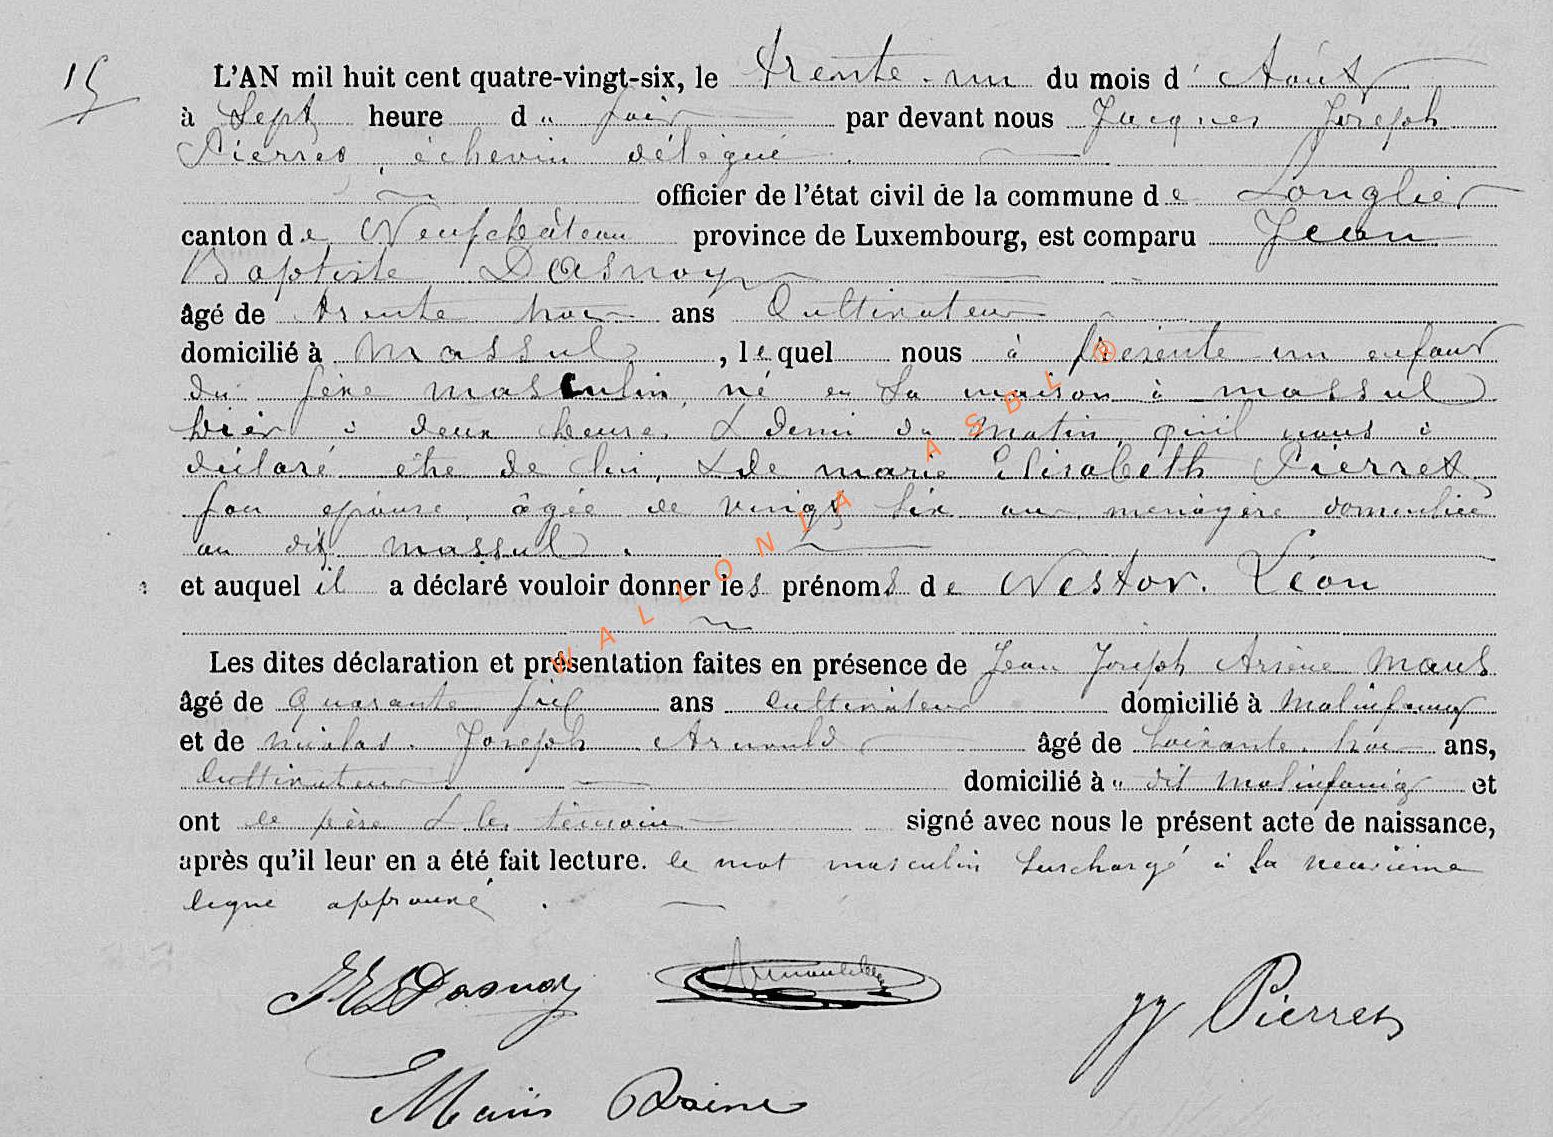 15
L'AN mil huit cent quatre-vingt-six, le trente-un du mois d'Août
à Sept heure du soir par devant nous Jacques Joseph
Pierret, échevin délégué
officier de l'état civil de la commune de Longlier
canton de Neufchâteau province de Luxembourg, est comparu Jean
Baptiste Dasnoy
âgé de trente trois ans Cultivateur
domicilié à Massul, lequel nous à présenté un enfant
du sexe masculin, né en sa maison à Massul
hier à deux heures & demi du matin, qu'il nous a
déclaré être de lui, & de Marie Elisabeth Pierret
son épouse, âgée de vingt six ans, ménagère domiciliée
au dit Massul.
et auquel il a déclaré vouloir donner les prénoms de Nestor. Léon
Les dites déclaration et présentation faites en présence de Jean Joseph Arsène Maus
âgé de quarante six ans cultivateur domicilié à Molinfaing
et de Nicolas. Joseph Arnould âgé de soixante. trois ans,
Cultivateur domicilié à u dit Molinfaing et
ont le père & les témoins signé avec nous le présent acte de naissance,
après qu'il leur en a été fait lecture. le mot masculin surchargé à la neuvième
ligne approuvé.
Dasnoy Arnould JJ Pierret
WALLONIA ASBL ®